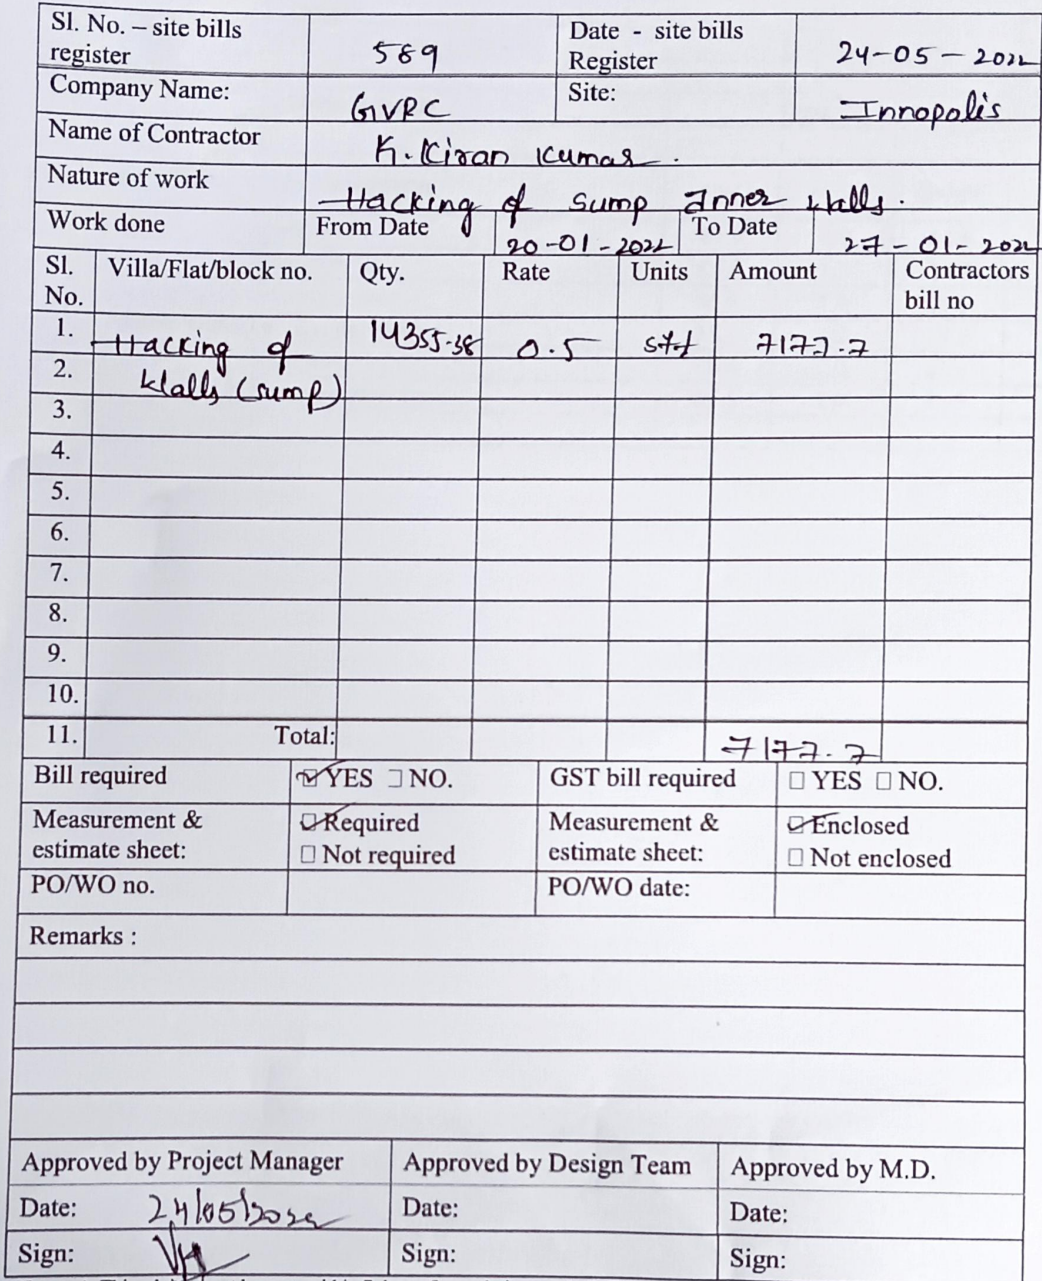 Sl. No. – site bills register 589 Date - site bills Register 24-05-2022
Company Name: GVRC Site: Innopolis
Name of Contractor K. Kiran Kumar.
Nature of work Hacking of sump Inner walls.
Work done From Date 20-01-2022 To Date 27-01-2022
Sl. No. Villa/Flat/block no. Qty. Rate Units Amount Contractors bill no
1. Hacking of 14355.38 0.5 sft 7177.7
2. walls (sump)
3.
4.
5.
6.
7.
8.
9.
10.
11. Total: 7177.7
Bill required ☑ YES ☐ NO. GST bill required ☐ YES ☐ NO.
Measurement & estimate sheet: ☑ Required ☐ Not required Measurement & estimate sheet: ☑ Enclosed ☐ Not enclosed
PO/WO no. PO/WO date:
Remarks :
Approved by Project Manager Approved by Design Team Approved by M.D.
Date: 24/05/2022 Date: Date:
Sign: Sign: Sign: